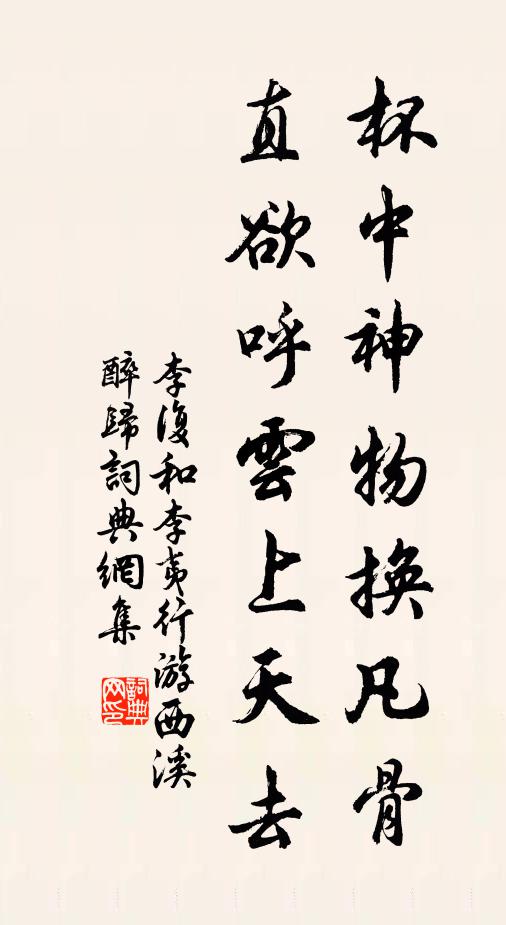 杯中神物換凡骨
直欲呼雲上天去
李復和李夷行游西溪
醉歸詞典網集
詞典網印